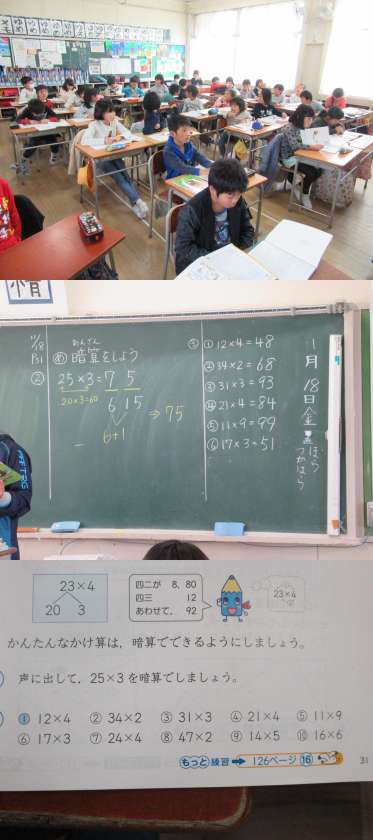 ゆめ ゆめ ゆめ ゆめ ゆめ
11/18
P31
め 暗算をしよう
あんざん
②
25×3=75
20×3=60
6 15
6+1
⇒75
③ ① 12×4=48
② 34×2=68
③ 31×3=93
④ 21×4=84
⑤ 11×9=99
⑥ 17×3=51
月 18日 金
23×4
20 3
四二が 8、80
四三 12
あわせて、 92
23×4
かんたんなかけ算は、暗算でできるようにしましょう。
声に出して、25×3を暗算でしましょう。
① 12×4 ② 34×2 ③ 31×3 ④ 21×4 ⑤ 11×9
⑥ 17×3 ⑦ 24×4 ⑧ 47×2 ⑨ 14×5 ⑩ 16×6
もっと練習 ➡ 126ページ ⑯
31